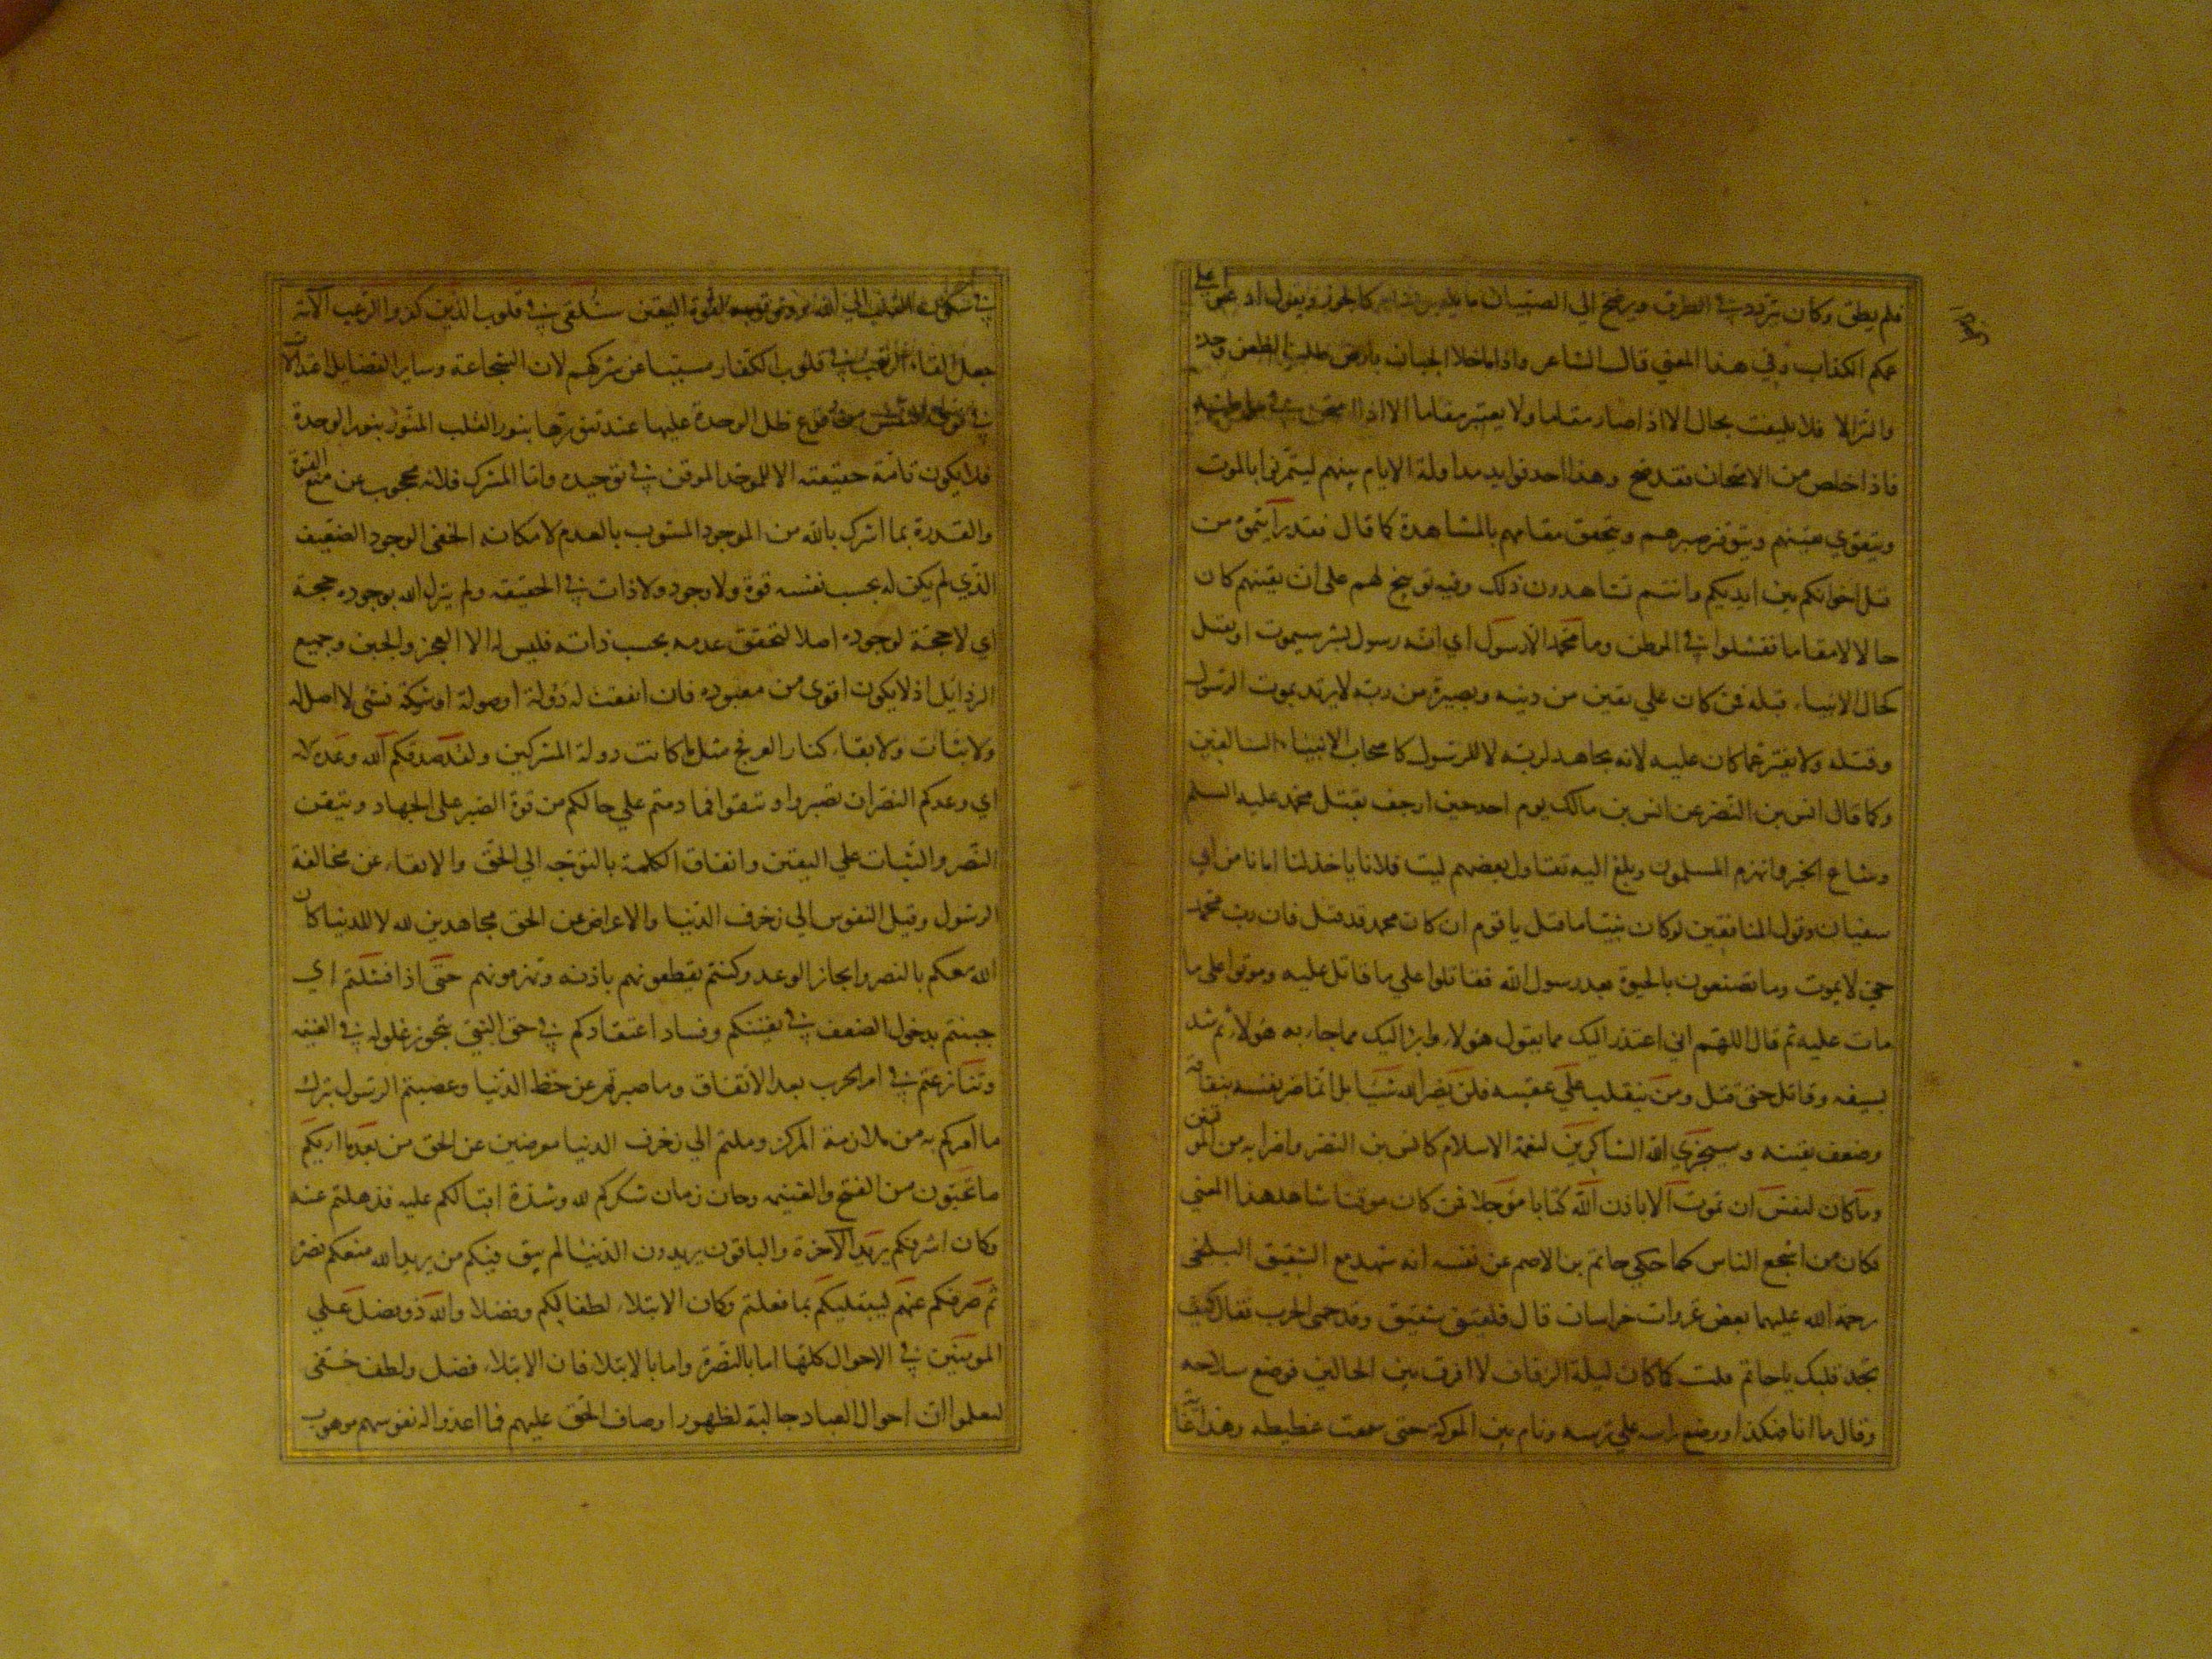 فلم يطق وكان يتردد في الطرق ويرضخ الي الصبيان ما يلعبون به كالجوز ويقول ادعوا علي
عمكم الكذاب وفي هذا المعني قال الشاعر واذا ما خلا الجبان بارض طلب الطعن وحده
والنزالا فلا يلتفت بحال الا اذا صار مقاما ولا يعتبر مقاما الا اذا امتحن في مواطنه
فاذا خلص من الامتحان فقد صح وهذا احد فوايد مداولة الايام بينهم ليتمرنوا بالموت
ويتقوي يقينهم ويتوفر صبرهم ويتحقق مقامهم بالمشاهدة كما قال فقد رايتموه من
قتل اخوانكم بين ايديكم وانتم تشاهدون ذلك وفيه توبيخ لهم علي ان يقينهم كان
حالا لا مقاما ففشلوا في الموطن وما محمد الا رسول اي انه رسول بشر سيموت او يقتل
كحال الانبياء قبله فمن كان علي يقين من دينه وبصيرة من ربه لا يرتد بموت الرسول
وقتله ولا يفتر عما كان عليه لانه يجاهد لربه لا للرسول كاصحاب الانبياء السالفين
وكما قال انس بن النضر عن انس بن مالك يوم احد حين ارجف بقتل محمد عليه السلم
وشاع الخبر وانهزم المسلمون وبلغ اليه تقاول بعضهم ليت فلانا ياخذ لنا امانا من ابي
سفيان وقول المنافقين لو كان نبيا ما قتل يا قوم ان كان محمد قد قتل فان رب محمد
حي لا يموت وما تصنعون بالحيوة بعد رسول الله فقاتلوا علي ما قاتل عليه وموتوا علي ما
مات عليه ثم قال اللهم اني اعتذر اليك مما يقول هؤلاء وابرا اليك مما جاء به هؤلاء ثم شد
بسيفه وقاتل حتي قتل ومن ينقلب علي عقبيه فلن يضر الله شيا بل انما ضر نفسه بنفاقه
وضعف يقينه وسيجزي الله الشاكرين لنعمة الاسلام كانس بن النضر واضرابه من الموقنين
وما كان لنفس ان تموت الا باذن الله كتابا مؤجلا فمن كان موقنا شاهد هذا المعني
فكان من اشجع الناس كما حكي حاتم بن الاصم عن نفسه انه شهد مع الشقيق البلخي
رحمة الله عليهما بعض غزوات خراسان قال فلقيني شقيق وقد حمي الحرب فقال كيف
تجد قلبك يا حاتم قلت كما كان ليلة الزفاف لا افرق بين الحالين فوضع سلاحه
وقال ما انا فهكذا ووضع راسه علي ترسه ونام بين المعركة حتي سمعت غطيطه وهذا غاية
في سكون القلب الي الله ووثوقه به لقوة اليقين سنلقي في قلوب الذين كفروا الرعب الاية
جعل القاء الرعب في قلوب الكفار مسببا عن شركهم لان الشجاعة وساير الفضايل اعتدالات
في قوي النفس من وقوع ظل الوحدة عليها عند تنورها بنور القلب المنور بنور الوحدة
فلا يكون تامة حقيقته الا للموحد الموقن في توحيده واما المشرك فلانه محجوب عن منبع القوة
والقدرة بما اشرك بالله من الموجود المشوب بالعدم لامكانه الخفي الوجود الضعيف
الذي لم يكن له بحسب نفسه قوة ولا وجود ولا ذات في الحقيقه ولم ينزل الله بوجوده حجة
اي لا حجة لوجوده اصلا لتحقق عدمه بحسب ذاته فليس له الا العجز والجبن وجميع
الرذايل اذ لا يكون اقوي من معبوده فان اتفقت له دولة او صولة او شوكة فشي لا اصل له
ولا ثبات ولا بقاء كنار العرفج مثل ما كانت دولة المشركين ولقد صدقكم الله وعده لانه
اي وعدكم النصر ان تصبروا وتتقوا فما دمتم علي حالكم من قوة الصبر علي الجهاد وتيقن
النصر والثبات علي اليقين واتفاق الكلمة بالتوجه الي الحق والاتقاء عن مخالفة
الرسول وميل النفوس الي زخرف الدنيا والاعراض عن الحق مجاهدين لله لا للدنيا كان
الله معكم بالنصر وانجاز الوعد وكنتم تقطعونهم باذنه وتهزمونهم حتي اذا فشلتم اي
جبنتم بدخول الضعف في يقينكم وفساد اعتقادكم في حق النبي بتجويز غلوله في الغنيمه
وتنازعتم في امر الحرب بعد الاتفاق وما صبرتم عن حظ الدنيا وعصيتم الرسول بترك
ما امركم به من ملازمة المركز وملتم الي زخرف الدنيا معرضين عن الحق من بعد ما اريكم
ما تحبون من الفتح والغنيمه وحان زمان شكركم لله وشدة اقبالكم عليه فذهلتم عنه
وكان اشرفكم يريد الاخرة والباقون يريدون الدنيا لم يبق فيكم من يريد الله منعكم نصره
ثم صرفكم عنهم ليبتليكم بما فعلتم وكان الابتلاء لطفا بكم وفضلا والله ذو فضل علي
المومنين في الاحوال كلها اما بالنصرة واما بالابتلاء فان الابتلاء فضل ولطف خفي
ليعلموا ان احوال العباد جالبة لظهور اوصاف الحق عليهم فما اعدوا له نفوسهم موهوب